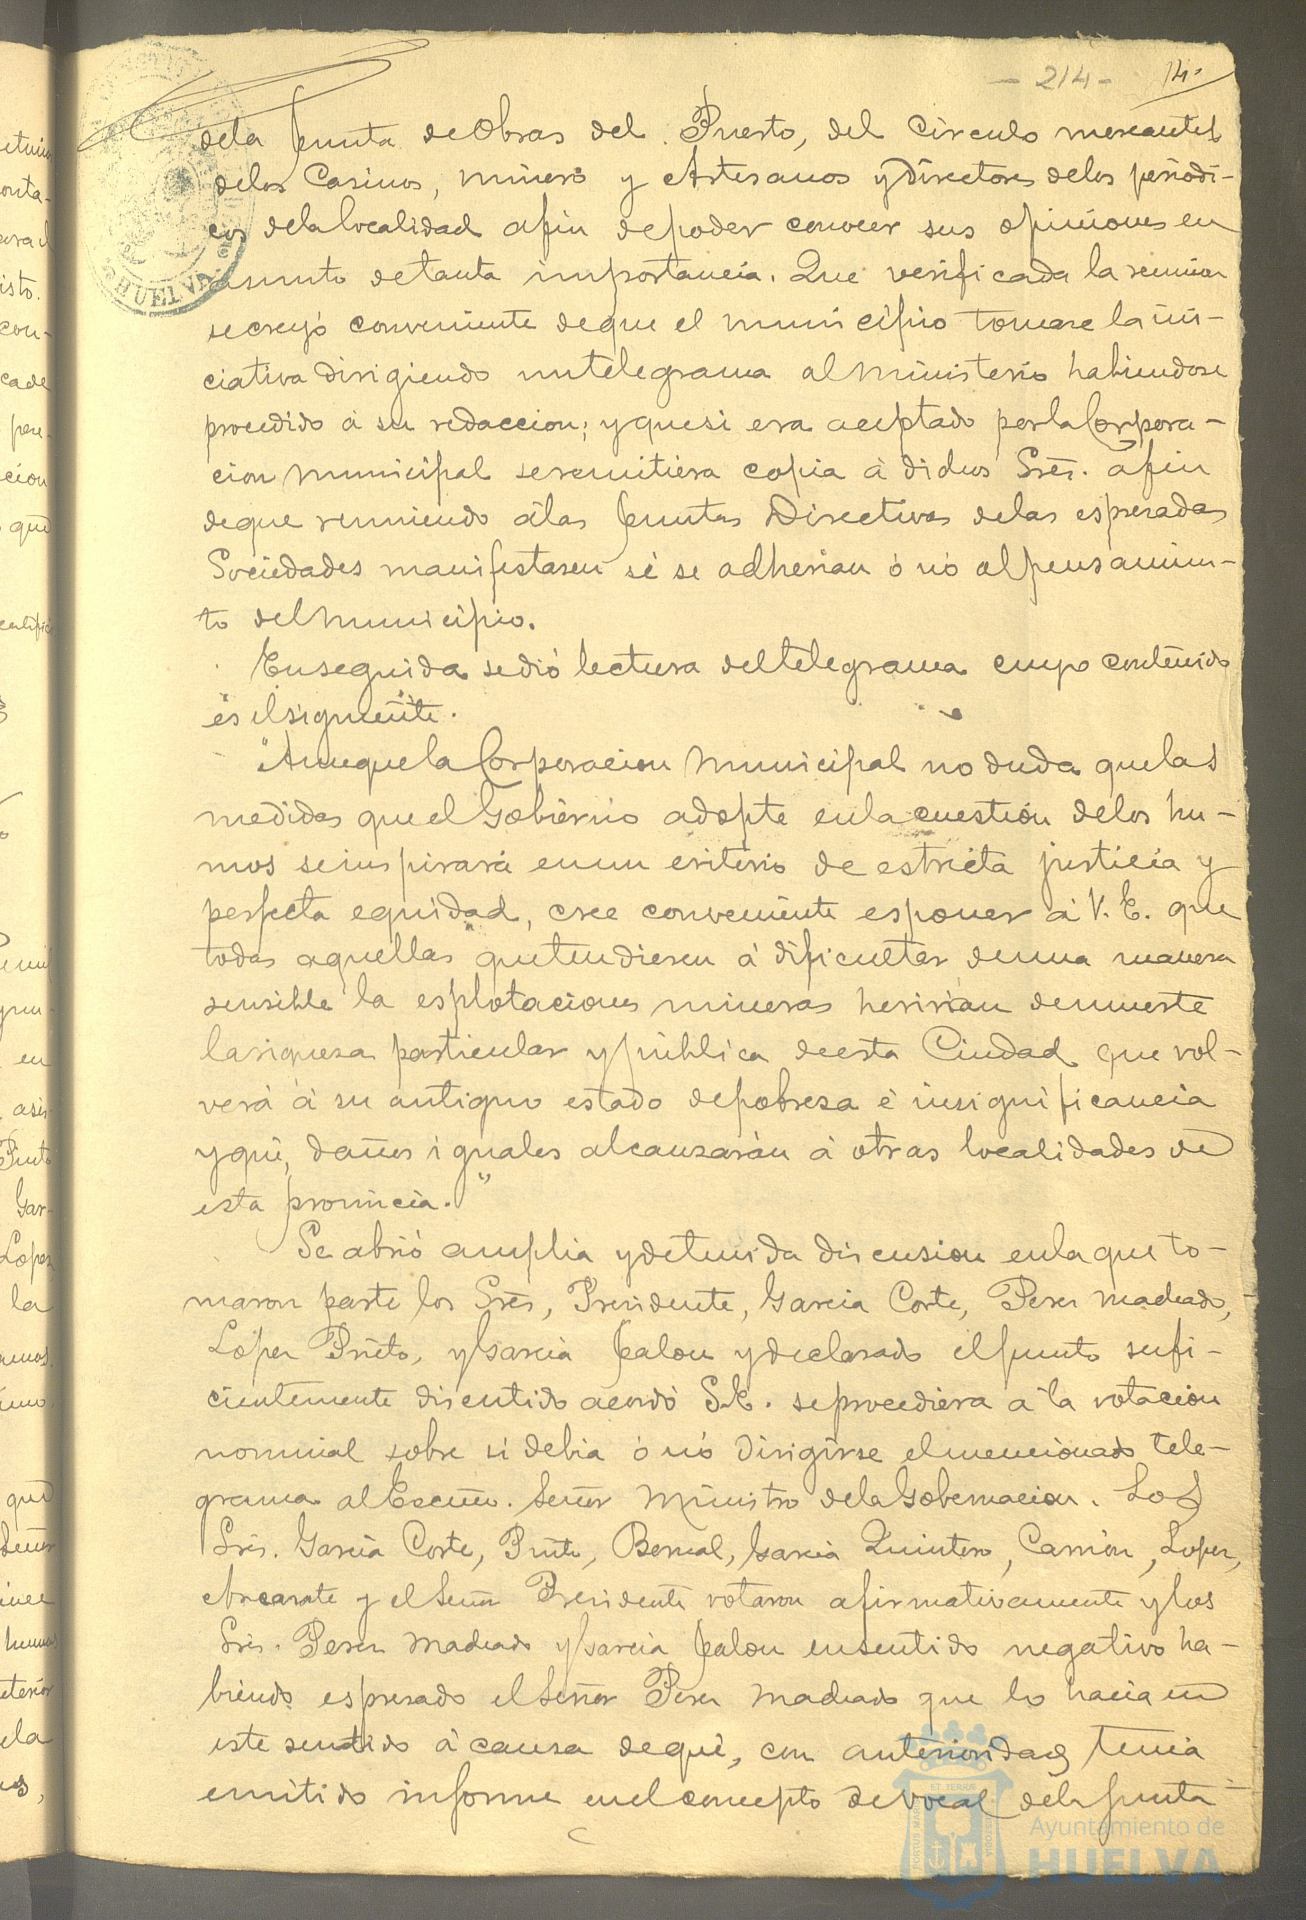 - 214 - 14
dela Junta de Obras del Puerto, del Circulo mercantil
delos Casinos, minero y Artesanos y directores delos periodi-
cos dela localidad afin de poder conocer sus opiniones en
asunto de tanta importancia. Que verificada la reunion
se creyó conveniente de que el municipio tomase la ini-
ciativa dirigiendo un telegrama al ministerio habiendose
procedido á su redaccion; y que si era aceptado por la Corpora-
cion municipal se remitiera copia á dichos Sres. afin
de que reuniendo á las Juntas Directivas delas espresadas
Sociedades manifestasen si se adherian ó nó al pensamien-
to del municipio.
Enseguida se dió lectura del telegrama cuyo contenido
es el siguiente.
"Aunque la Corporacion Municipal no duda que las
medidas que el Gobierno adopte en la cuestión delos hu-
mos se inspirará en un criterio de estricta justicia y
perfecta equidad, cree conveniente esponer á V. E. que
todas aquellas que tendiesen á dificultar de una manera
sensible la esplotaciones mineras heririan de muerte
la riqueza particular y pública de esta Ciudad que vol-
verá á su antiguo estado de pobreza é insignificancia
y que, daños iguales alcanzarán á otras localidades de
esta provincia."
Se abrió amplia y detenida discusion en la que to-
maron parte los Sres, Presidente, Garcia Corte, Perez Machado,
López Prieto, y Garcia Jalon y declarado el punto sufi-
cientemente discutido acordó S.E. se procediera a la votacion
nominal sobre si debia ó nó dirigirse el mencionado tele-
grama al Excmo. Señor Ministro dela Gobernacion. Los
Sres. Garcia Corte, Prieto, Bernal, Garcia Quintero, Carrión, Lopez,
Azcarate y el Señor Presidente votaron afirmativamente y los
Sres. Perez Machado y Garcia Jalon en sentido negativo ha-
biendo espresado el Señor Perez Machado que lo hacia en
este sentido á causa de que, con anterioridad tenia
emitido informe en el concepto de Vocal dela Junta
HUELVA
Ayuntamiento de
HUELVA